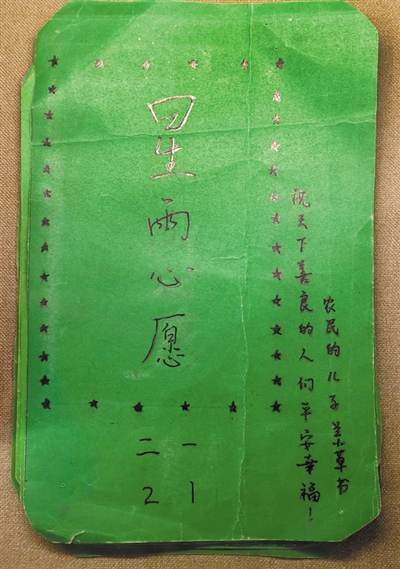 星雨心愿
祝天下善良的人们平安幸福！
农民的儿子兰小草书
二一
21